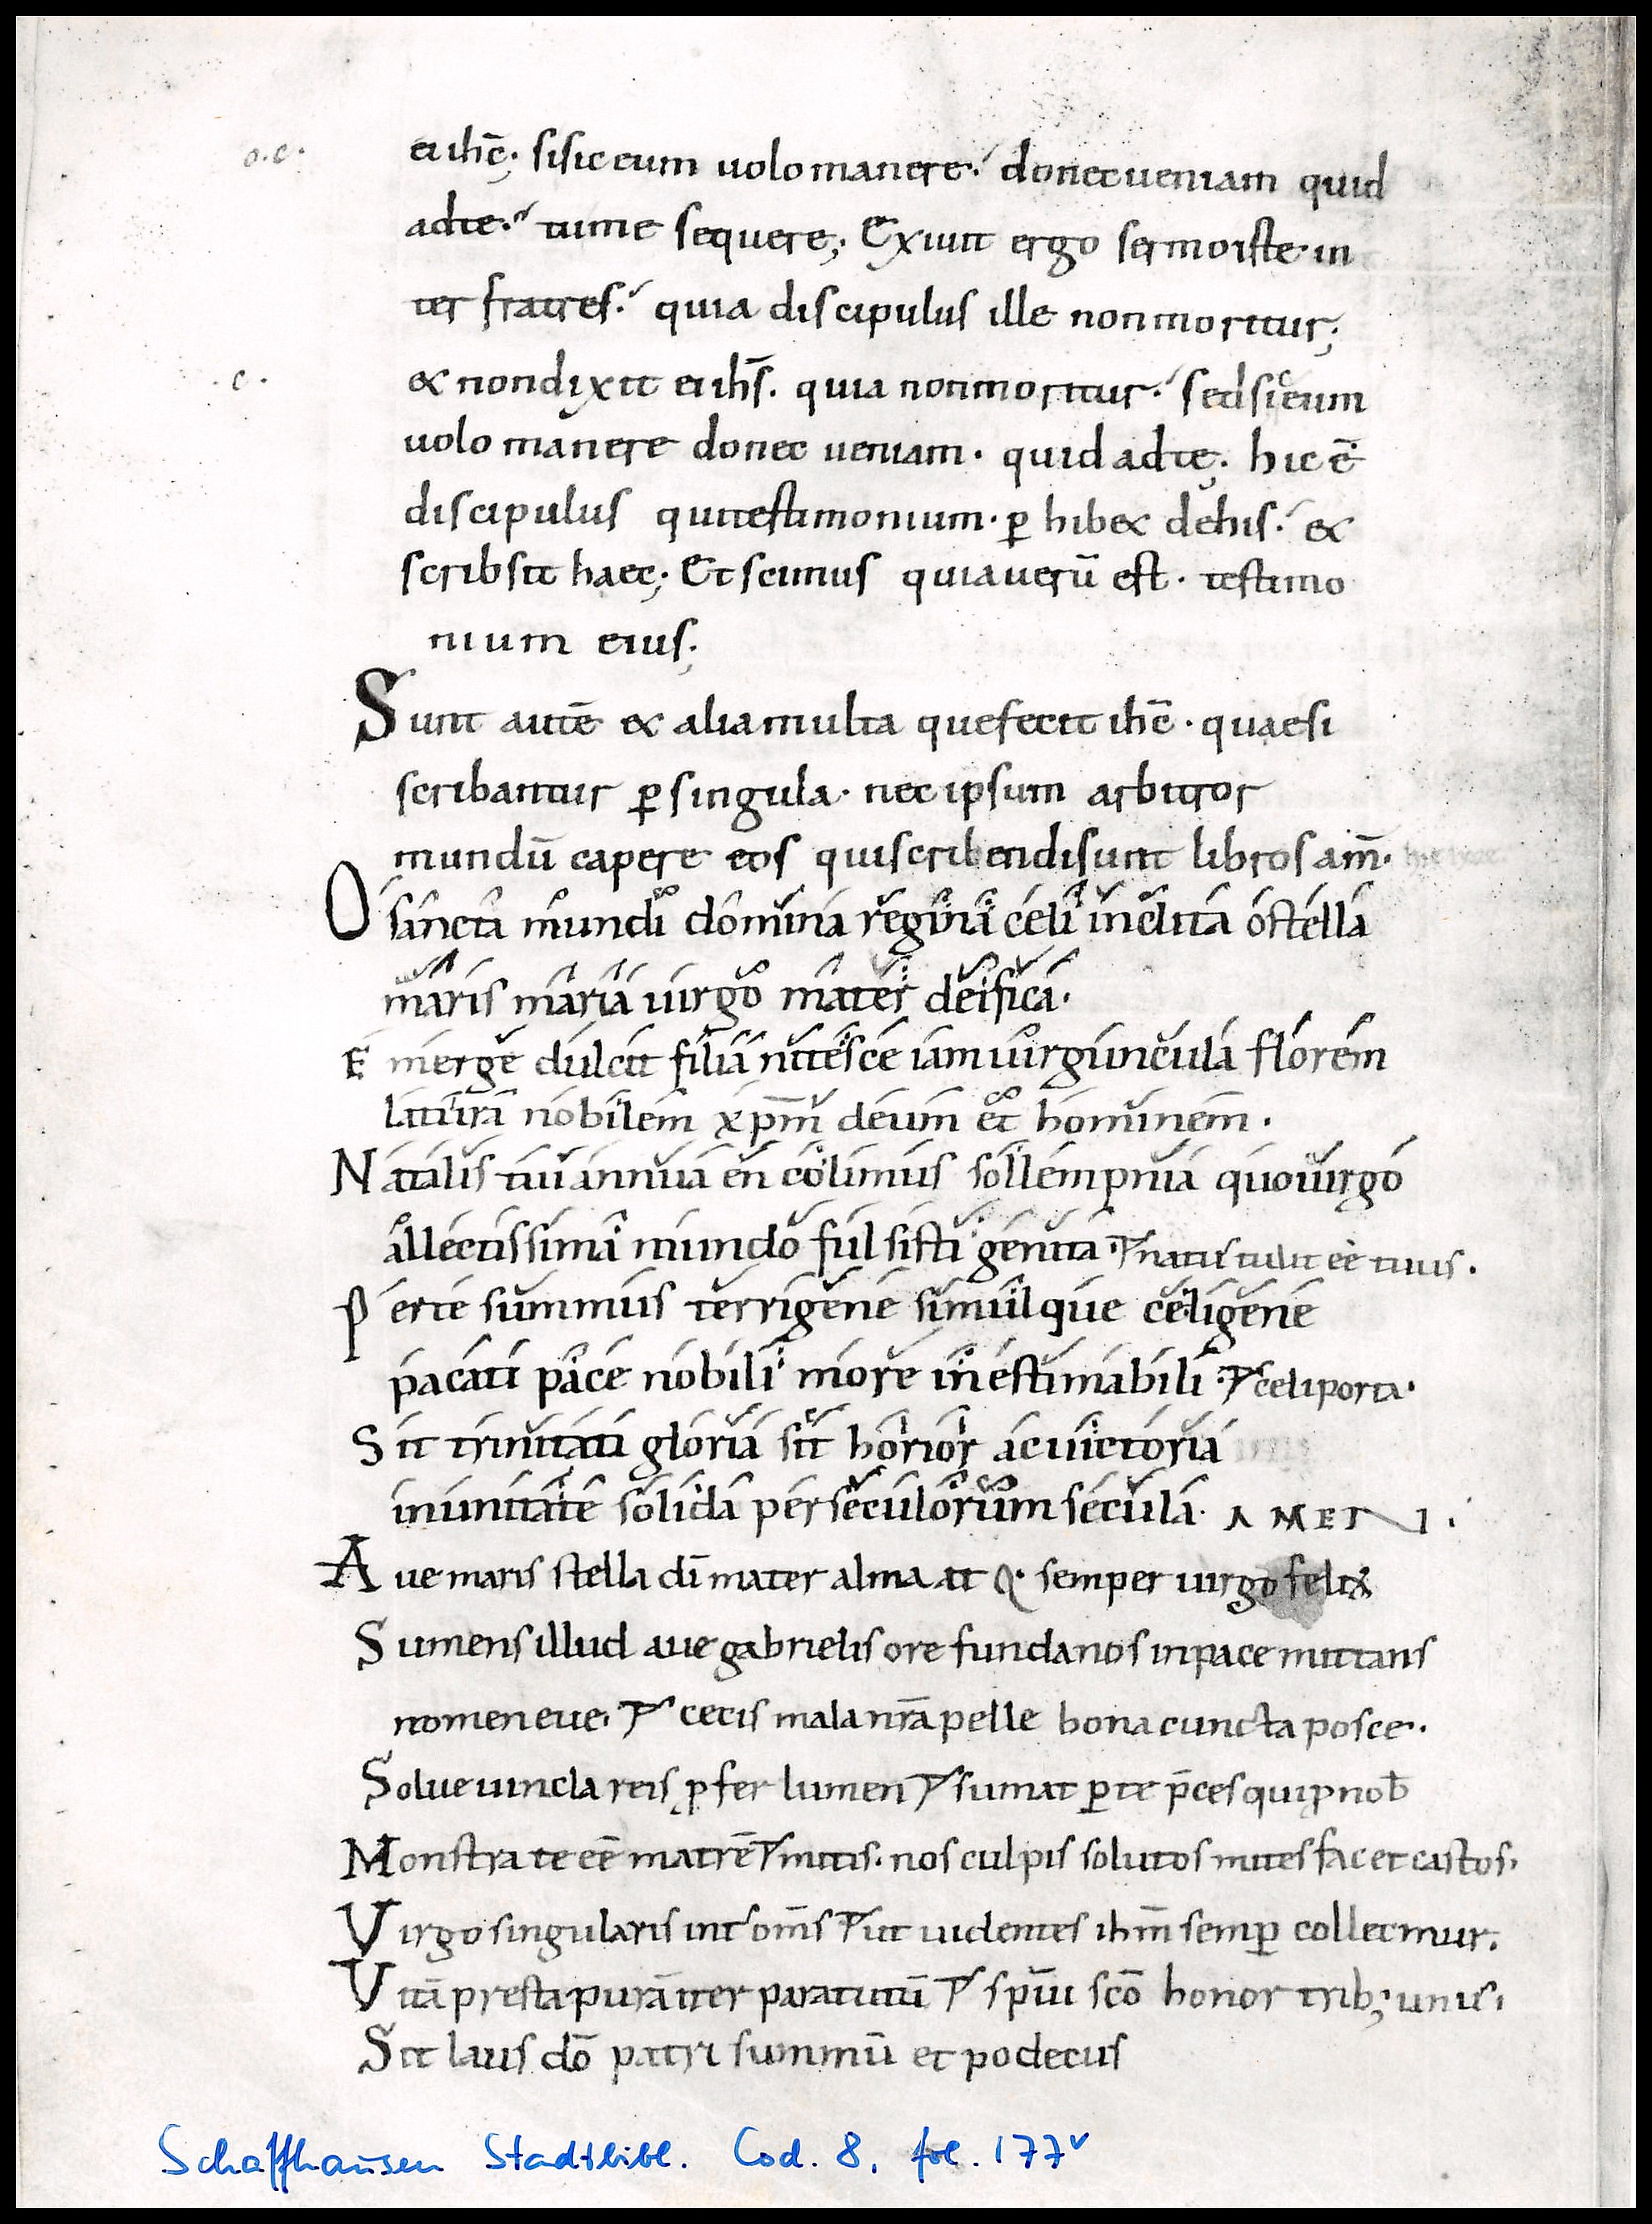 o.c.
ei ihc̄; si sic eum uolo manere. donec ueniam quid
ad te. tu me sequere; Exiuit ergo sermo iste in
ter fratres. quia discipulus ille non moritur;
.c.
& non dixit ei ihs̄. quia non moritur. sed sic eum
uolo manere donec ueniam. quid ad te; hic ē
discipulus qui testimonium. ꝑ hib& de his. &
scribsit haec; Et scimus quia uerū est. testimo
nium eius;
Sunt autē & alia multa que fecit ihc̄. quae si
scribantur ꝑ singula. nec ipsum arbitror
mundū capere eos qui scribendi sunt libros am̄.
O sancta mundi domina regina celi inclita o stella
maris maria uirgo mater deifica.
E merge dulcis filia nitesce iam uirguncula florem
latura nobilem xpm̄ deum et hominem.
N atalis tui annua en colimus sollempnia quo uirgo
allectissima mundo fulsisti genita. natus tulit eē tuus.
P er te summus terrigene simulque celigene
pacati pace nobili more inestimabili. celi porta.
S it trinitati gloria sit honor ac uictoria
in unitate solida per seculorum secula. AMEN.
A ue maris stella dī mater alma at q. semper uirgo felix
S umens illud aue gabrielis ore funda nos in pace mutans
nomen eue. cecis mala nr̄a pelle bona cuncta posce.
S olue uincla reis ꝓfer lumen sumat ꝑ te p̄ces qui ꝓ nob̄
M onstra te eē matrē mitis. nos culpis solutos mites fac et castos.
V irgo singularis int̾ om̄s ut uidentes ihm̄ semꝑ colletmur.
V itā presta purā iter para tutū spūi scō honor trib; unus.
S it laus dō patri summū et po decus
Schaffhausen Stadtbibl. Cod. 8, fol. 177ᵛ